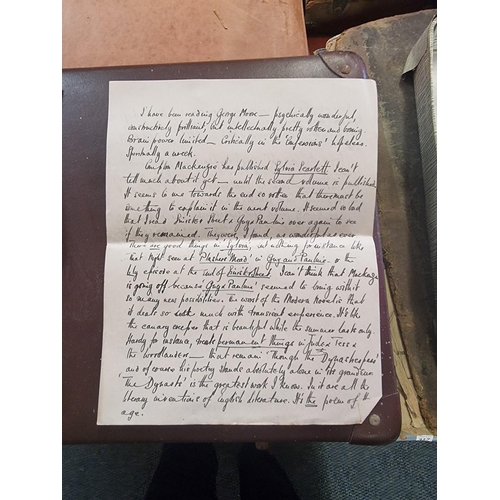 I have been reading George Moore — psychically wonderful,
constructively brilliant, but intellectually pretty rotten and boring.
Brain power limited — Critically in the 'Confessions' hopeless.
Spiritually a wreck.
Compton Mackenzie has published Sylvia Scarlett I can't
tell much about it yet — until the second volume is published.
It seems to me towards the end so rotten that there must be
something to explain it in the next volume. It seemed so bad
that I read Sinister Street & Guy & Pauline over again to see
if they remained. They were, I found, as wonderful as ever
There are good things in Sylvia, but nothing for instance like
that night scene at 'Plashers Mead' in Guy and Pauline or the
Lily episode at the end of Sinister Street. I can't think that Mackenzie
is going off because 'Guy & Pauline' seemed to bring with it
so many new possibilities. The worst of the Modern Novel is that
it deals so much with transient experience. It's like
the canary creeper that is beautiful while the summer lasts only.
Hardy for instance, treats permanent things in Jude & Tess &
the Woodlanders — that remain. Though the 'Dynasts'
and of course his poetry stands absolutely alone in its grandeur
'The Dynasts' is the greatest work I know. In it are all the
literary inventions of English literature. It's the poem of the
age.